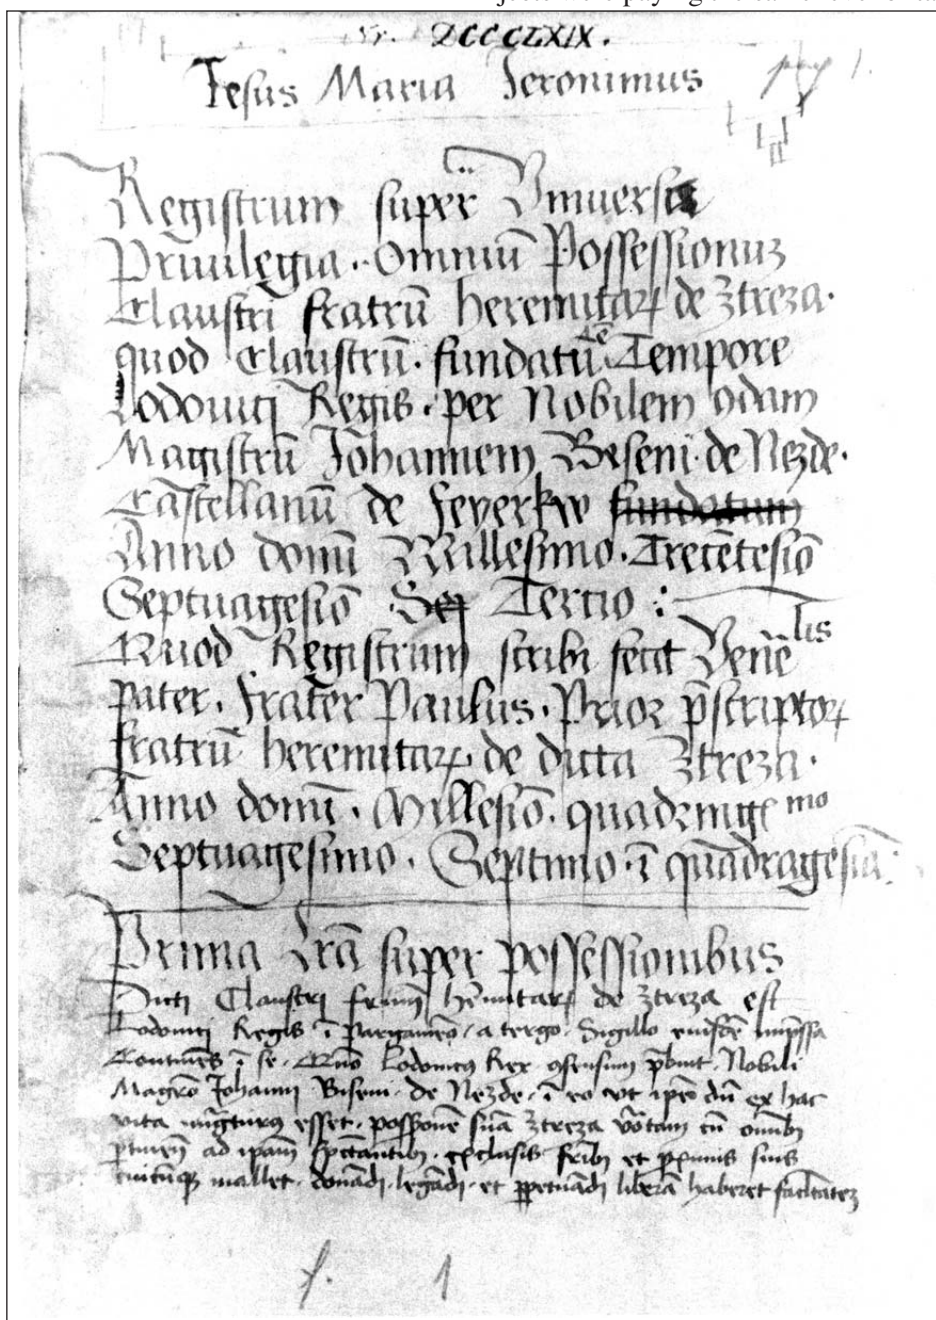 ZCCCCLXIX.
Jesus Maria Jeronimus
Registrum super Vniuersa
Priuilegia. Omniū Possessionuz
Claustri fratrū heremitarꝝ de ztreza.
quod Claustrū. fundatū Tempore
Lodouici Regis. per Nobilem qdam
Magistrū Johannem Biseni. de Nezde.
Castellanū de feyerkw fundatum
Anno domī Millesimo. Trecētesiō
Septuagesiō Tertio :
Quod Registrum scribi fecit Venēlis
pater. frater Paulus. Prior p̄scriptorꝝ
fratrū heremitarꝝ de dicta ztreza.
Anno domī. Millesiō. quadringēmo
Septuagesimo. Septimo. ī quadragesiā.
Prima Lrā super possessionibus
Dicti Claustri frūm hēmitarꝝ de ztreza est
Lodouici Regis ī Pargameō. a tergo. Sigillo eiusdē imp̄ssa
Continēs ī se. Quō Lodouicus Rex ꝯsensum p̄buit. Nobili
Magrō Johanni Biseni. de Nezde. ī eo vt ipē dū ex hac
vita migturus esset. possionē suā ztreza vōtam cū omībꝫ
ptinēn ad ipam spectantibꝫ. exclusis fribꝫ et proximis suis
cuicūqꝫ mallet. donādi. legādi. et ppetuādi liberā haberet facultatez
1